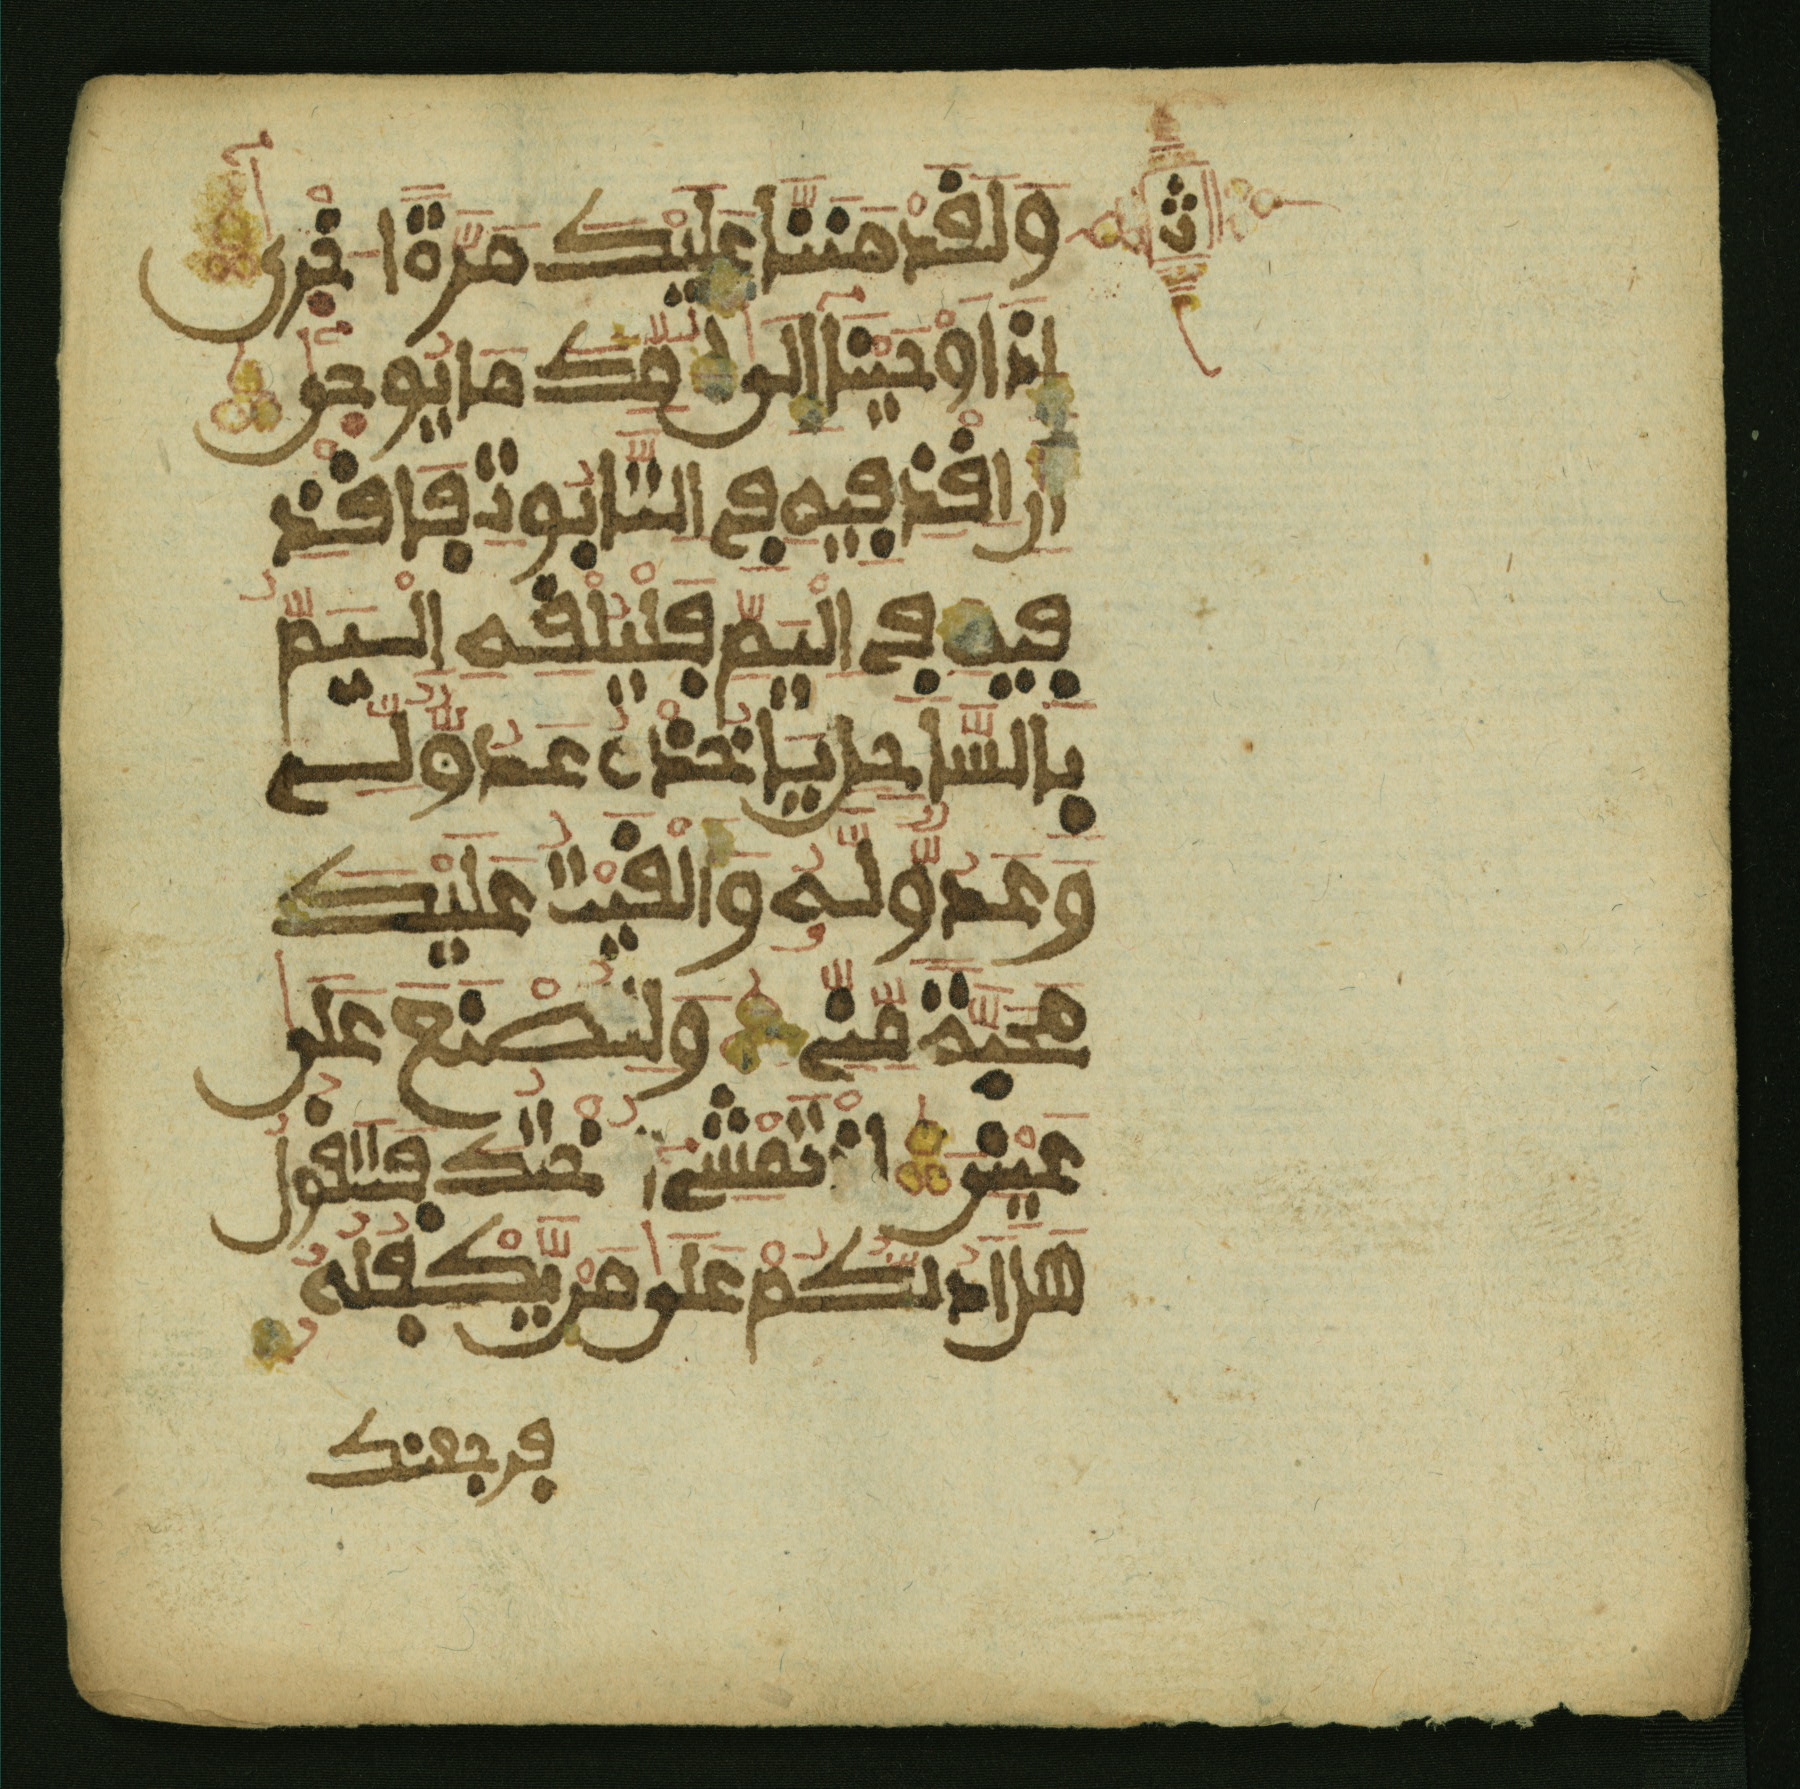 ث
وَلَقَدْ مَنَنَّا عَلَيْكَ مَرَّةً اخْرىٰ
إِذَ اَوْحَيْنَا إِلىٰ أُمِّكَ مَا يُوحىٰ
أَنِ اقْذِفِيهِ فِي التَّابُوتِ فَاقْذِ
فِيهِ فِي الْيَمِّ فَلْيُلْقِهِ الْيَمُّ
بِالسَّاحِلِ يَاخُذْهُ عَدُوٌّ لِّے
وَعَدُوٌّ لَّهُ وَأَلْقَيْتُ عَلَيْكَ
مَحَبَّةً مِّنِّے وَلِتُصْنَعَ عَلىٰ
عَيْنِي إِذْ تَمْشِے أُخْتُكَ فَتَقُولُ
هَلَ اَدُلُّكُمْ عَلىٰ مَنْ يَّكْفُلُهُ
فرجعنك